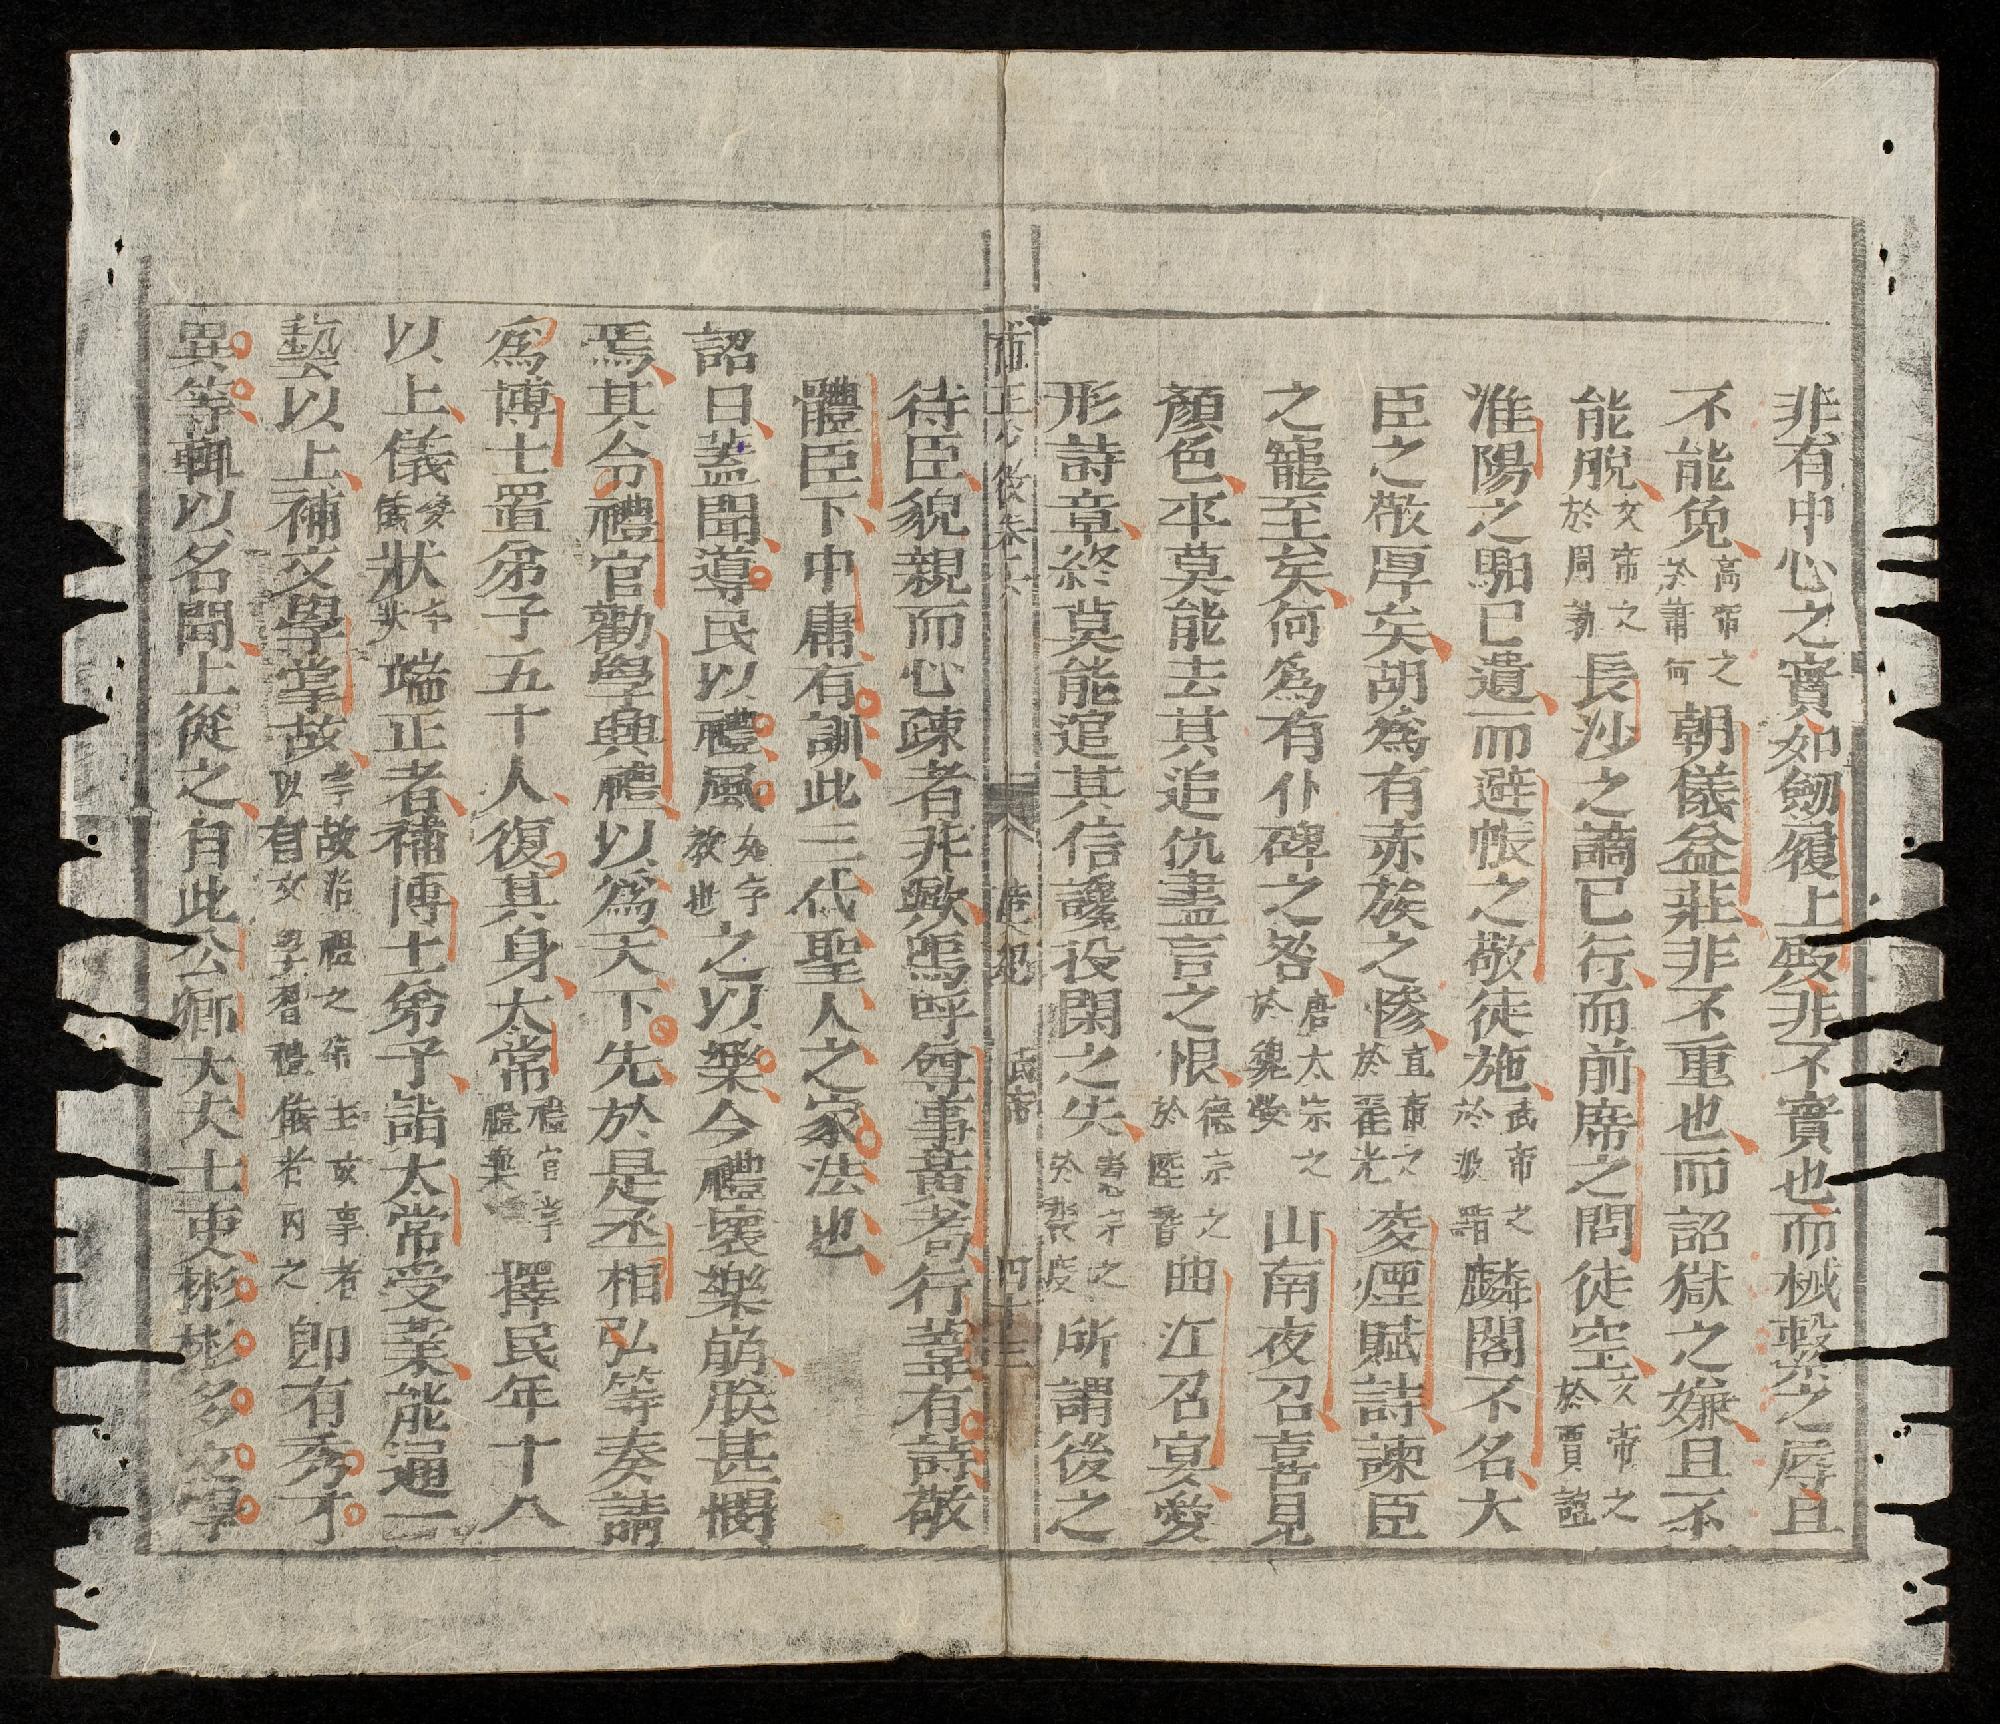 非有中心之實如劒履上殿非不實也而械繫之辱且
不能免高帝之於蕭何朝儀益莊非不重也而詔獄之嫌且不
能脫文帝之於周勃長沙之謫已行而前席之問徒空文帝之於賈誼
淮陽之駟已遣而避帳之敬徒施武帝之於汲黯麟閣不名大
臣之敬厚矣胡為有赤族之慘宣帝之於霍光凌煙賦詩諫臣
之寵至矣何為有仆碑之咎唐太宗之於魏徵山南夜召喜見
顏色卒莫能去其追仇盡言之恨德宗之於陸贄曲江召宴愛
形詩章終莫能追其信讒投閑之失憲宗之於裴度所謂後之
待臣貌親而心疎者非歟嗚呼尊事黃耇行葦有詩敬
體臣下中庸有訓此三代聖人之家法也
詔曰蓋聞導民以禮風如字教也之以樂今禮壞樂崩朕甚憫
焉其令禮官勸學興禮以爲天下先於是丞相弘等奏請
爲博士置弟子五十人復其身太常禮官掌禮樂擇民年十八
以上儀變儀狀字狀端正者補博士弟子詣太常受業能通一
藝以上補文學掌故掌故治禮之官主故事者以自文學習禮儀者丙之卽有秀才
異等輒以名聞上從之自此公卿大夫士吏彬彬多文學